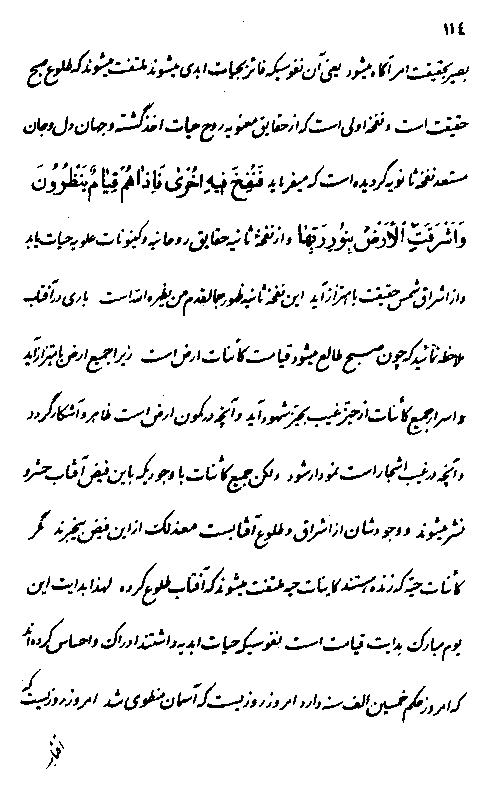 ١١٤
بصیر بحقیقت امر آگاه میشود یعنی آن نفوسیکه فائز بحیات ابدی میشوند ملتفت میشوند که طلوع صبح
حقیقت است و نفخهٔ اولی است که از حقایق معنویه روح حیات اخذ گشته و جهان دل و جان
مستعد نفخهٔ ثانویه گردیده است که میفرماید فَنُفِخَ فیهِ اُخْرٰی فَاِذاهُمْ قِیامٌ یَنْظُرُونَ
وَاَشْرَقَتِ الْاَرْضُ بِنُورِ رَبِّهٰا و از نفخهٔ ثانیه حقایق روحانیه و کینونات علویه حیات یابد
و از اشراق شمس حقیقت باهتزاز آید این نفخهٔ ثانیه ظهور جمالقدم من یظهره الله است باری در آفتاب
ملاحظه نمائید که چون صبح طالع میشود قیامت کائنات ارض است زیرا جمیع ارض باهتزاز آید
و اسرار جمیع کائنات از حیّز غیب بحیّز شهود آید و آنچه در کمون ارض است ظاهر و آشکار گردد
و آنچه در غیب اشجار است نمودار شود ولکن جمیع کائنات با وجودیکه باین فیض آفتاب حشر و
نشر میشوند و وجودشان از اشراق و طلوع آفتابست معذلک از این فیض بیخبرند مگر
کائنات حیّه که زنده هستند کاینات حیه ملتفت میشوند که آفتاب طلوع کرده لهذا بدایت این
یوم مبارک بدایت قیامت است نفوسیکه حیات ابدیه داشتند ادراک و احساس کرده‌اند
که امروز حکم خمسین الف سنه دارد امروز روزیست که آسمان منطوی شد امروز روزیست که
آفتاب